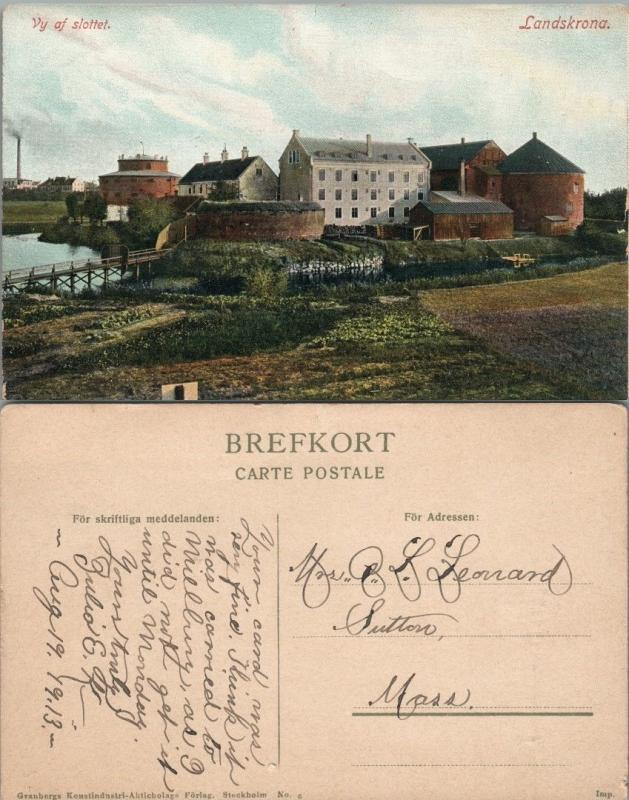 Vy af slottet.
Landskrona.
BREFKORT
CARTE POSTALE
För skriftliga meddelanden:
För Adressen:
Your card was
very fine. Think it
was carried to
Millbury, as I
did not get it
until Monday.
Yours truly
Julia E.
~ Aug 19, 1913. ~
Mrs. C. L. Leonard
Sutton,
Mass.
Granbergs Konstindustri-Aktiebolags Förlag. Stockholm No.
Imp.